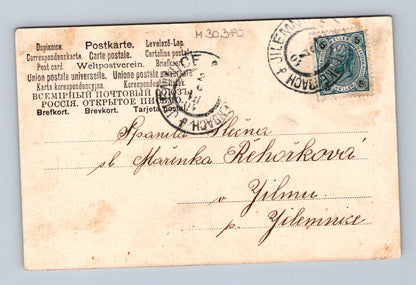 M 30390
Dopisnice. Postkarte. Levelező-Lap.
Correspondenzkarte. Carte postale. Cartolina postale
Post card. Weltpostverein. Briefkaart
Union postale universelle. Unione postale universale
Karta korespondencyjna. Korespondenčni
ВСЕМІРНЫЙ ПОЧТОВЫЙ
РОССІЯ. ОТКРЫТОЕ ПИСЬМО.
Brefkort. Brevkort. Tarjeta postal
Spanilá Slečna
sl. Mařenka Řehořková
v Jilmu
p. Jilemnice